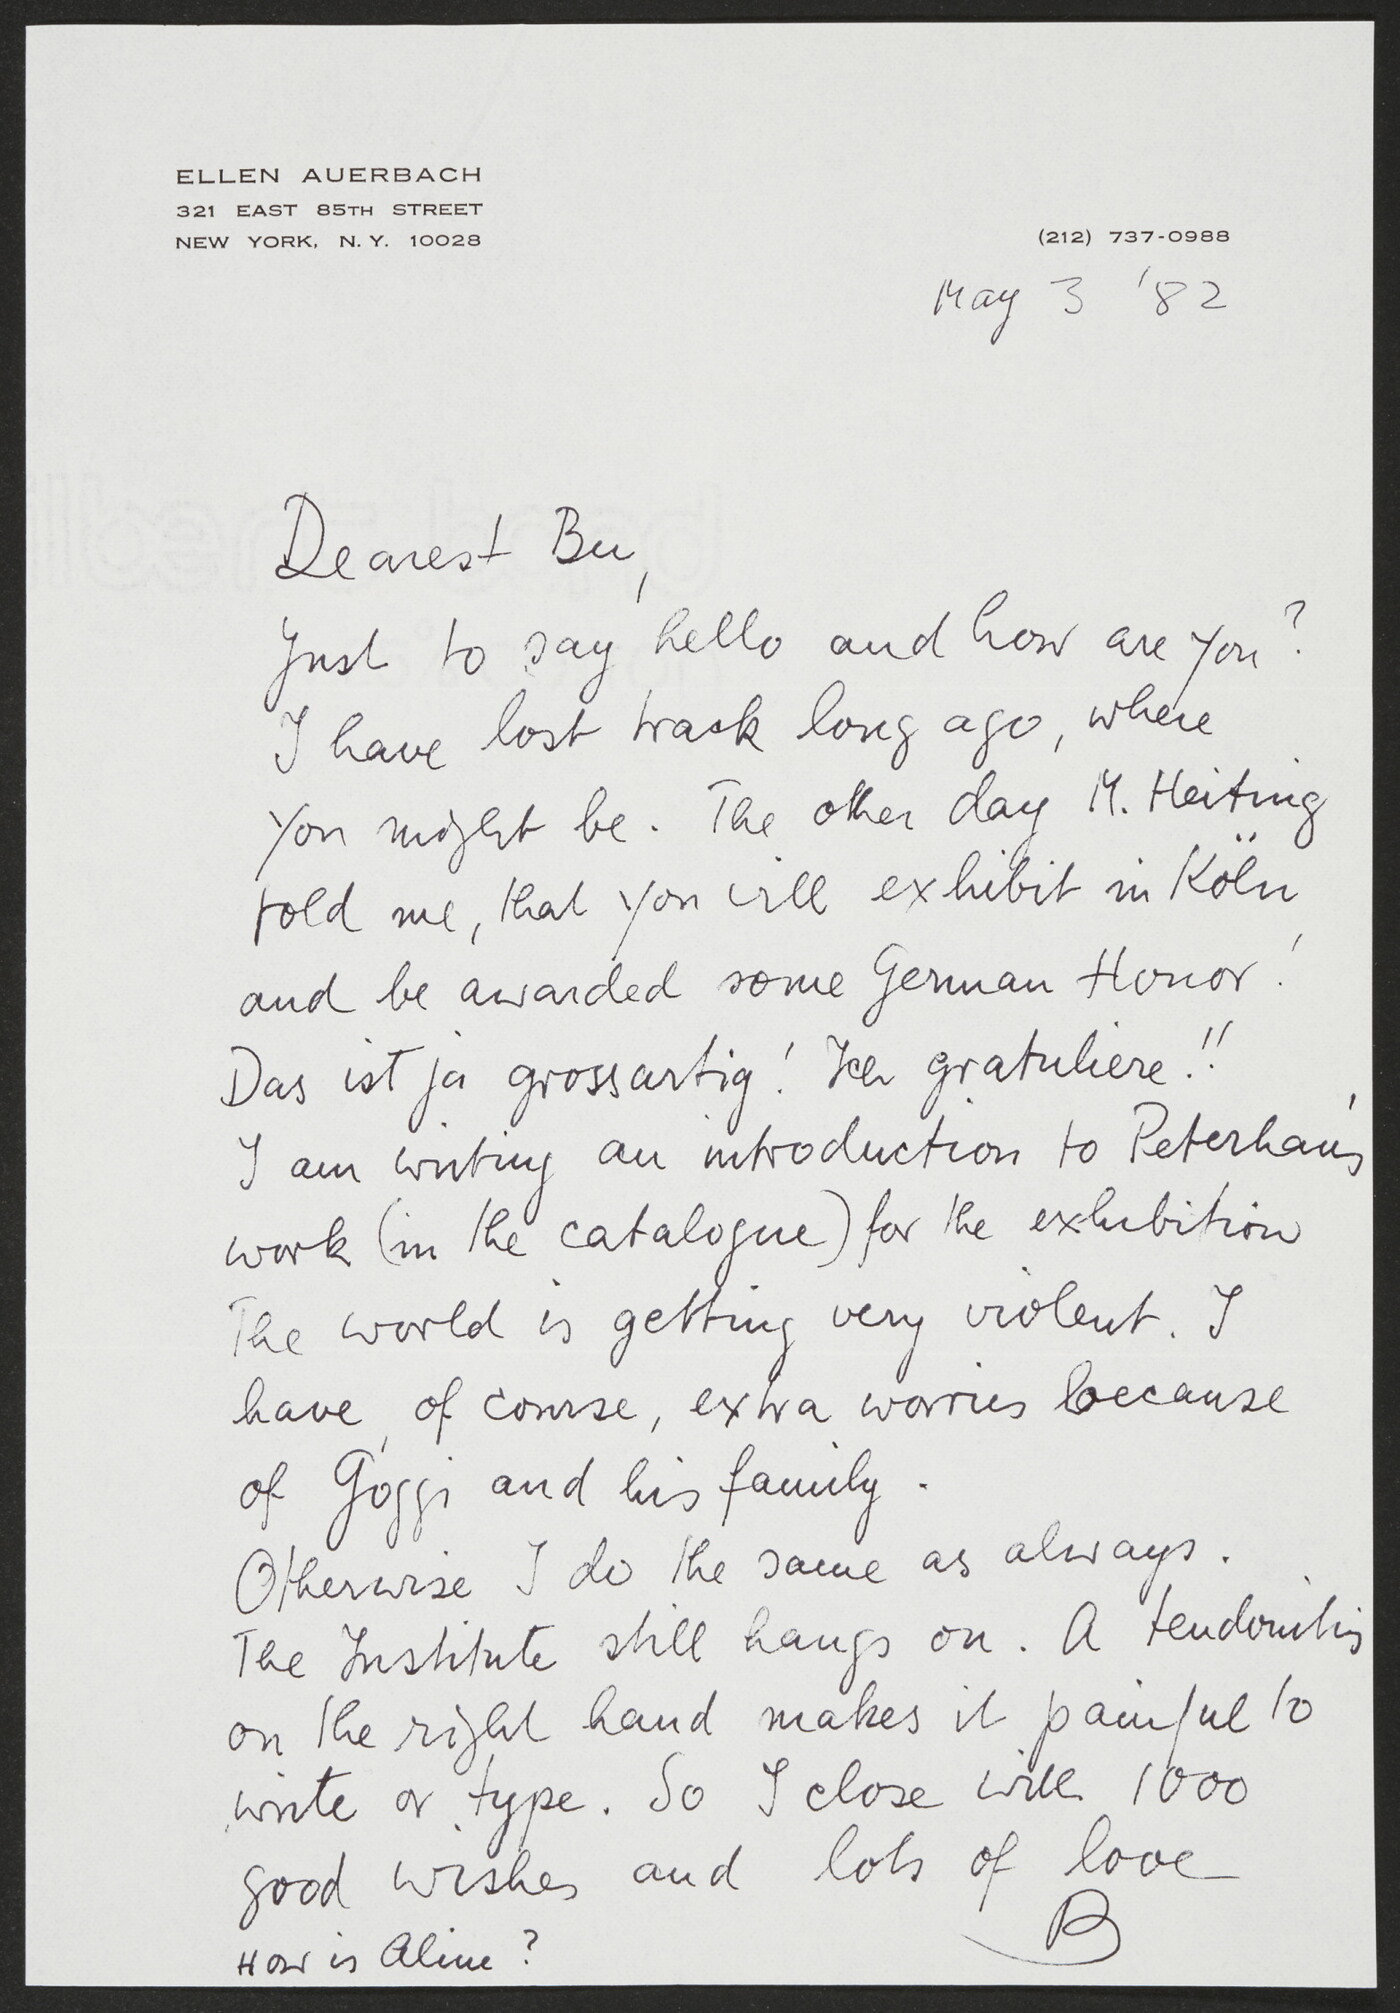 ELLEN AUERBACH
321 EAST 85TH STREET
NEW YORK, N.Y. 10028
(212) 737-0988
May 3 '82
Dearest Bu,
Just to say hello and how are you?
I have lost track long ago, where
you might be. The other day M. Heiting
told me, that you will exhibit in Köln
and be awarded some German Honor!
Das ist ja grossartig! Ich gratuliere!!
I am writing an introduction to Peterhans'
work (in the catalogue) for the exhibition
The world is getting very violent. I
have, of course, extra worries because
of Goggi and his family.
Otherwise I do the same as always.
The Institute still hangs on. A tendonitis
on the right hand makes it painful to
write or type. So I close with 1000
good wishes and lots of love
B
How is Aline?